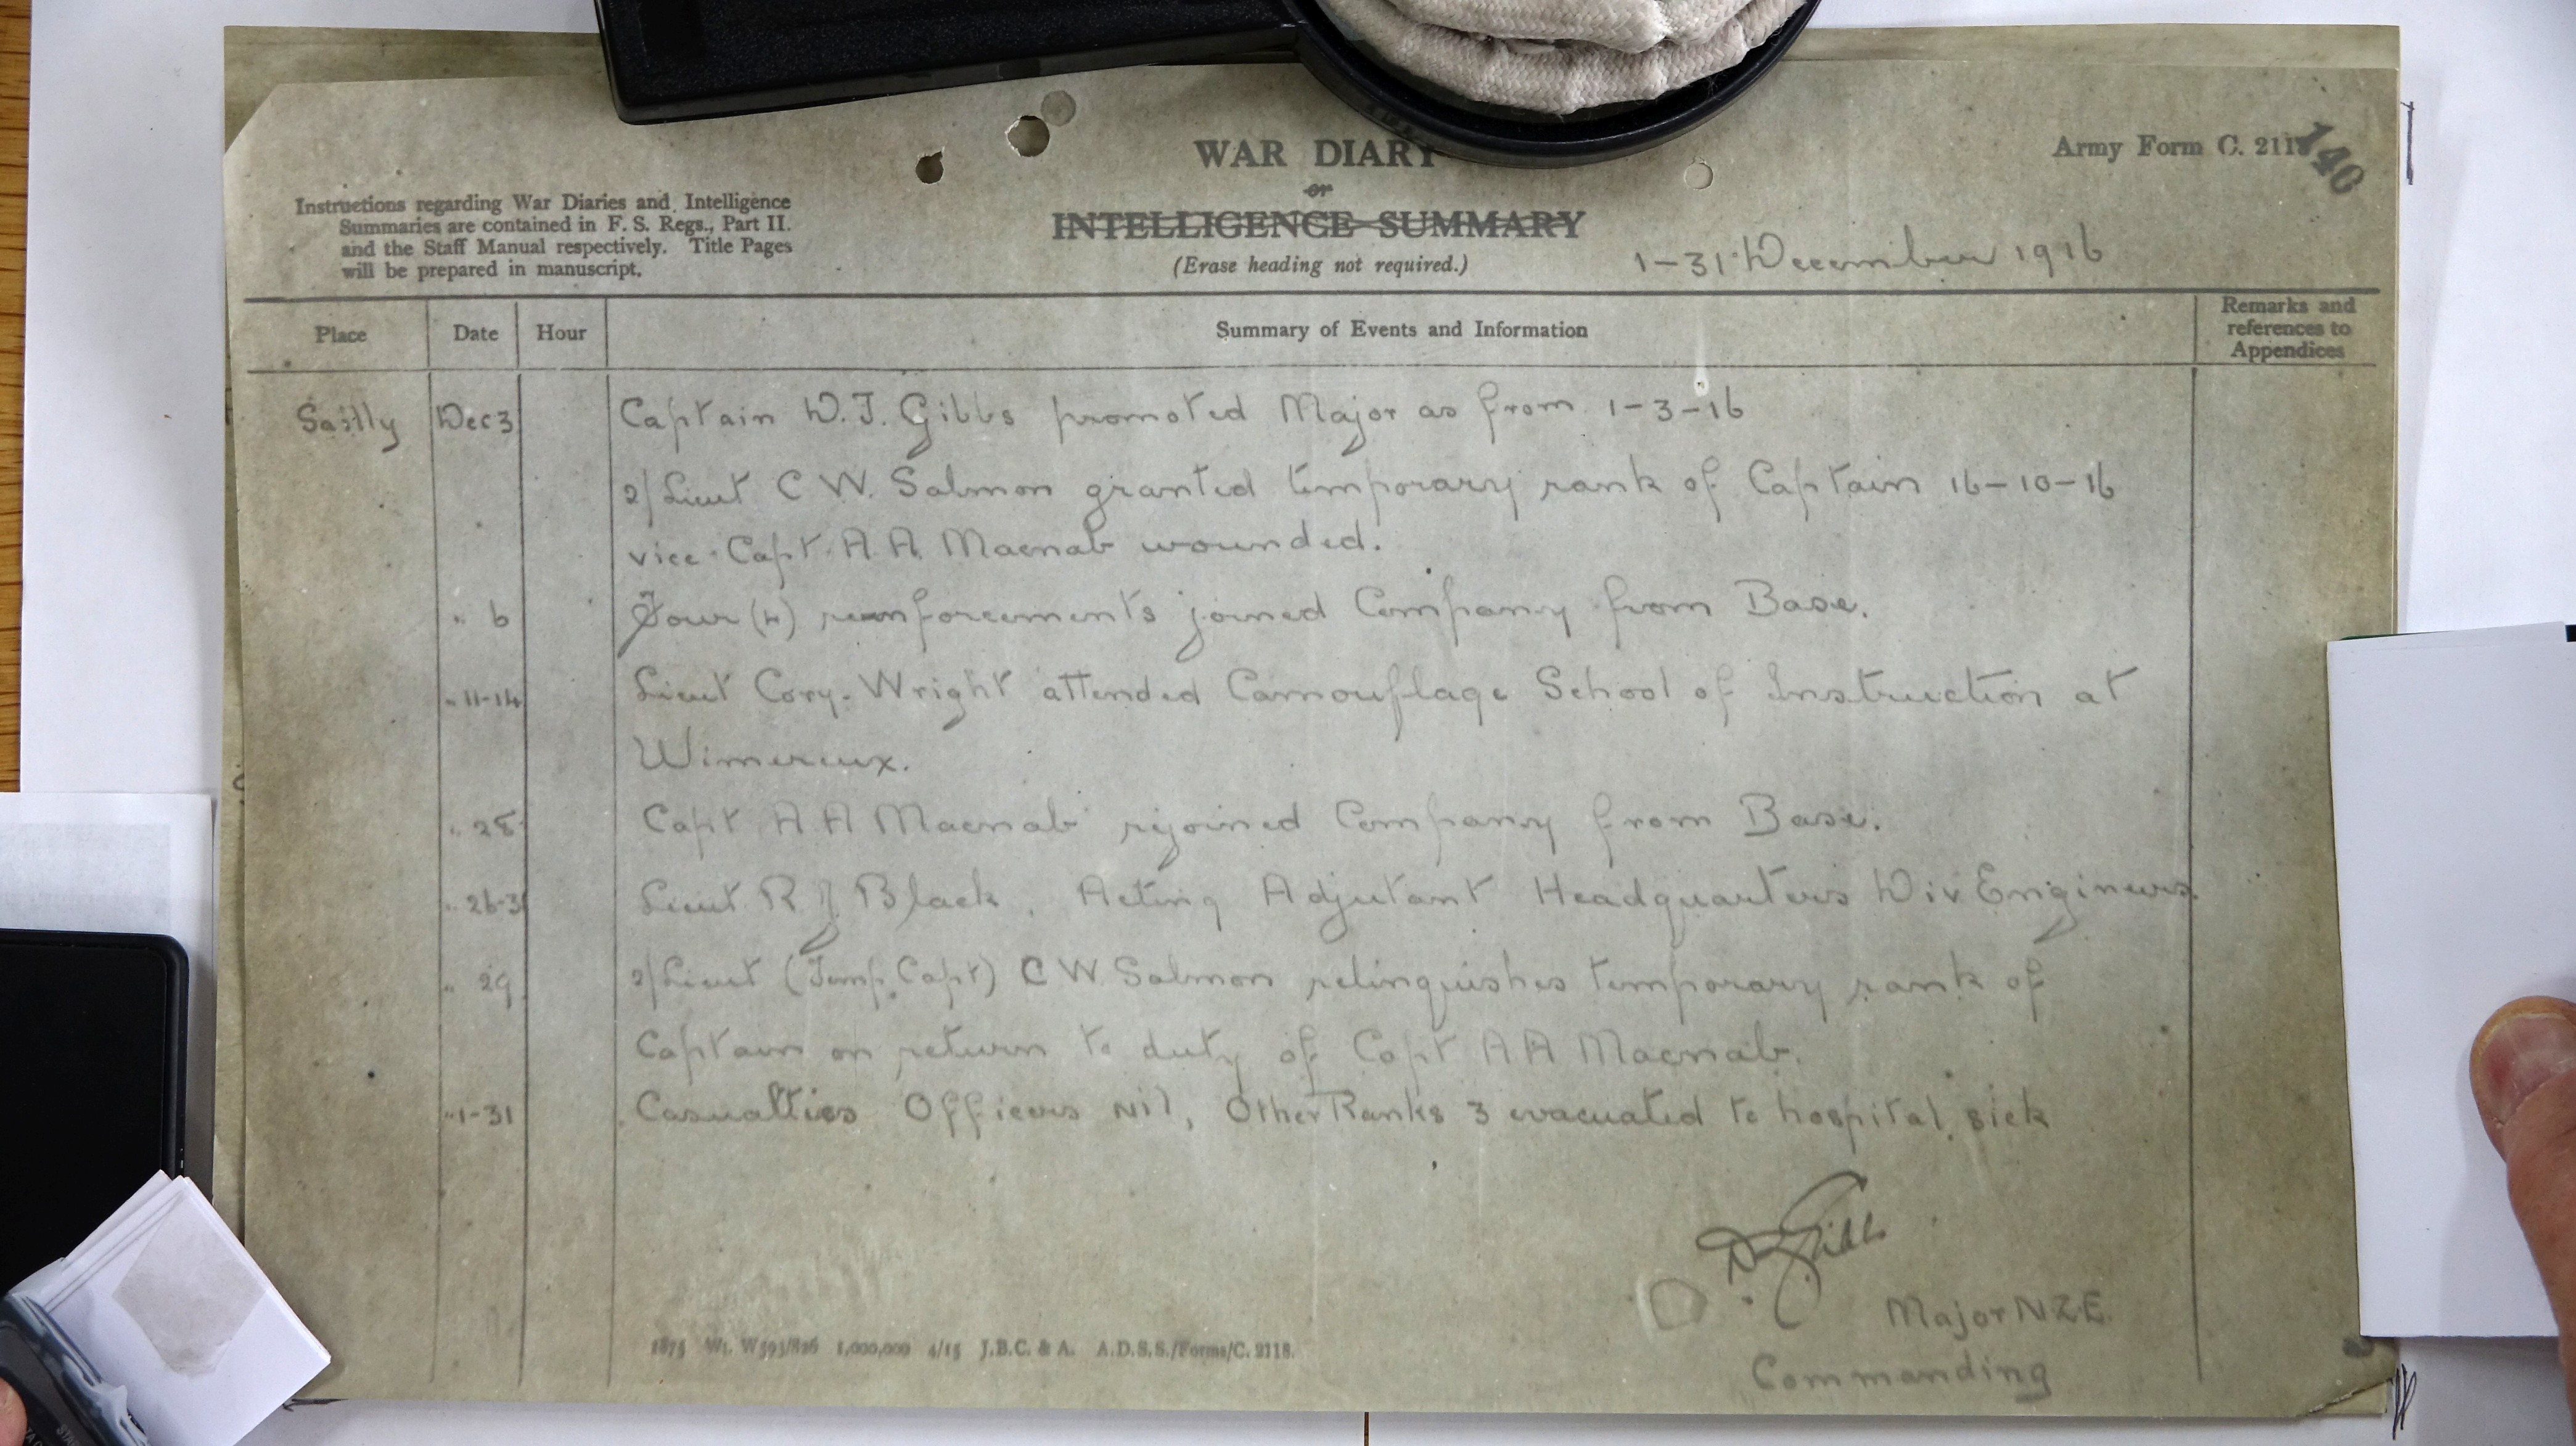 WAR DIARY
or
INTELLIGENCE SUMMARY
(Erase heading not required.)
Army Form C. 211
140
Instructions regarding War Diaries and Intelligence
Summaries are contained in F. S. Regs., Part II.
and the Staff Manual respectively. Title Pages
will be prepared in manuscript.
1-31 December 1916
Place Date Hour Summary of Events and Information Remarks and references to Appendices
Sailly Dec 3 Captain D.J. Gibbs promoted Major as from 1-3-16
2/Lieut C W. Salmon granted temporary rank of Captain 16-10-16
vice Capt. A. A. Macnab wounded.
" 6 Four (4) reinforcements joined Company from Base.
" 11-14 Lieut Cory-Wright attended Camouflage School of Instruction at
Wimereux.
" 28 Capt A A Macnab rejoined Company from Base.
" 26-31 Lieut R J. Black, Acting Adjutant Headquarters Div Engineers.
" 29 2/Lieut (Temp. Capt) C W. Salmon relinquishes temporary rank of
Captain on return to duty of Capt A A Macnab.
" 1-31 Casualties Officers Nil, Other Ranks 3 evacuated to hospital, sick
D J Gibbs
Major N.Z.E.
Commanding
1875 Wt. W593/826 1,000,000 4/15 J.B.C. & A. A.D.S.S./Forms/C. 2118.